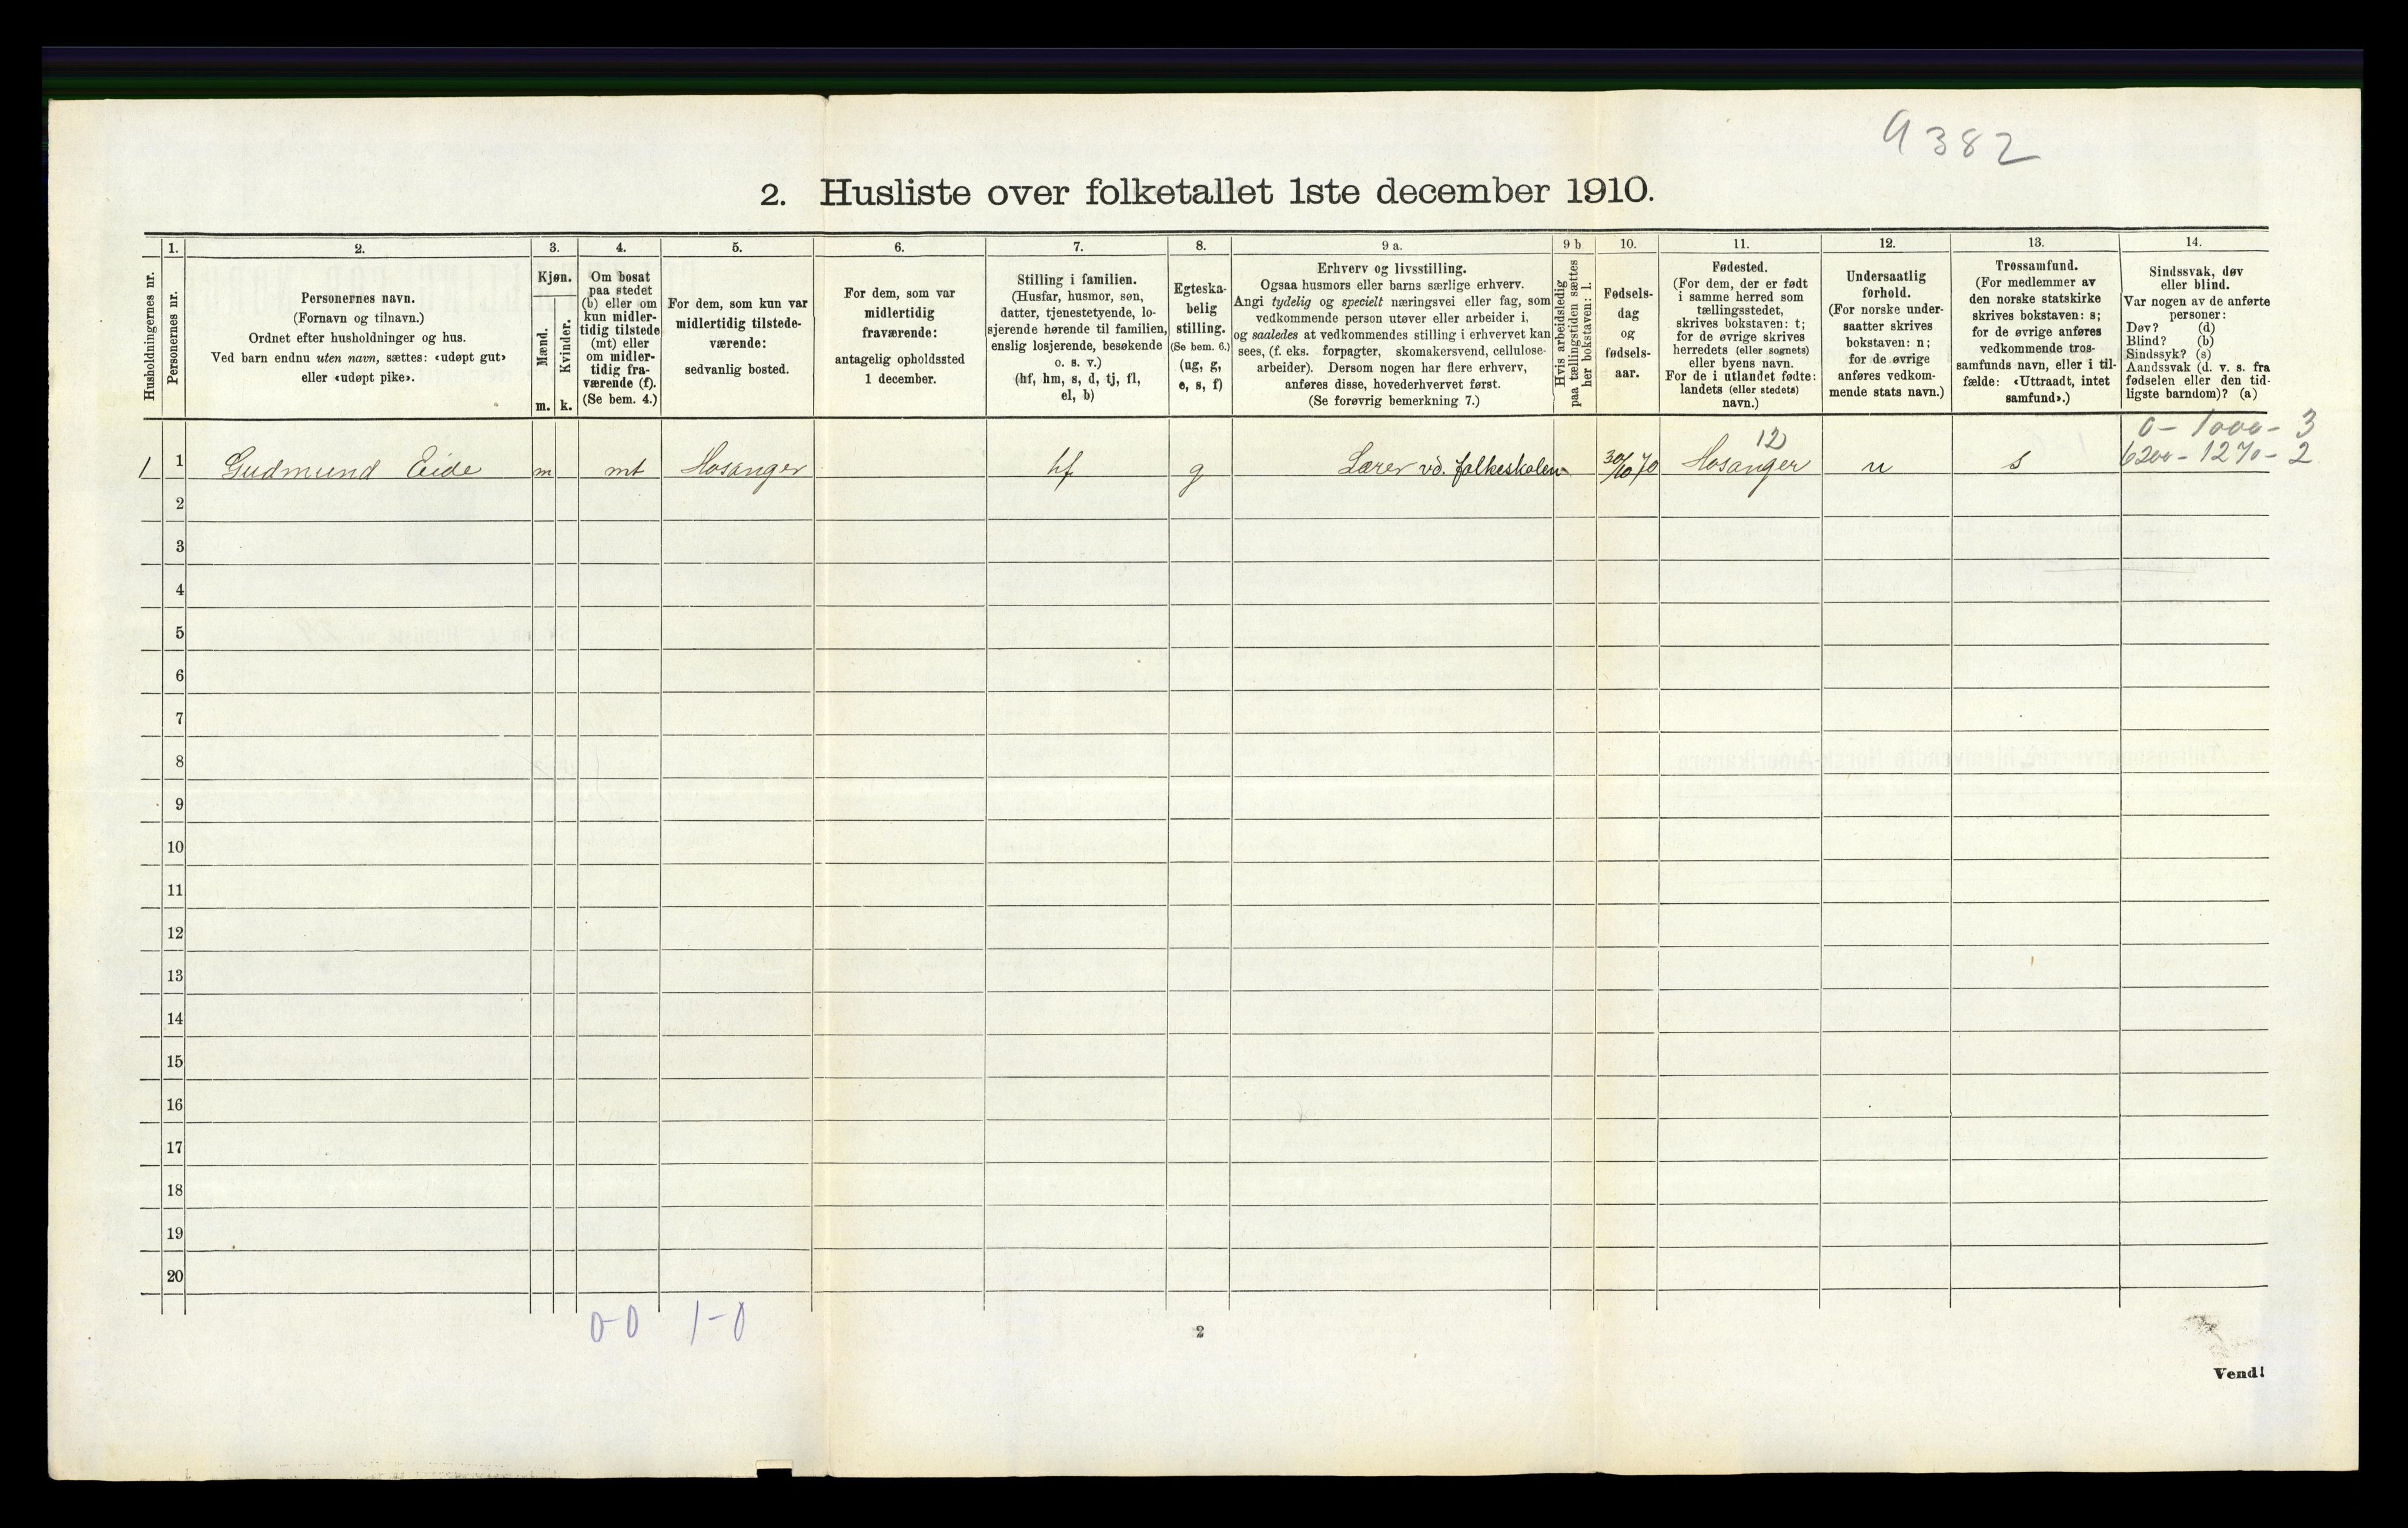 9382
2. Husliste over folketallet 1ste december 1910.
Husholdningernes nr.
1.
Personernes nr.
2.
Personernes navn.
(Fornavn og tilnavn.)
Ordnet efter husholdninger og hus.
Ved barn endnu uten navn, sættes: «udøpt gut»
eller «udøpt pike».
3.
Kjøn.
Mænd.
Kvinder.
m. k.
4.
Om bosat
paa stedet
(b) eller om
kun midler-
tidig tilstede
(mt) eller
om midler-
tidig fra-
værende (f).
(Se bem. 4.)
5.
For dem, som kun var
midlertidig tilstede-
værende:
sedvanlig bosted.
6.
For dem, som var
midlertidig
fraværende:
antagelig opholdssted
1 december.
7.
Stilling i familien.
(Husfar, husmor, søn,
datter, tjenestetyende, lo-
sjerende hørende til familien,
enslig losjerende, besøkende
o. s. v.)
(hf, hm, s, d, tj, fl,
el, b)
8.
Egteska-
belig
stilling.
(Se bem. 6.)
(ug, g,
e, s, f)
9 a.
Erhverv og livsstilling.
Ogsaa husmors eller barns særlige erhverv.
Angi tydelig og specielt næringsvei eller fag, som
vedkommende person utøver eller arbeider i,
og saaledes at vedkommendes stilling i erhvervet kan
sees, (f. eks. forpagter, skomakersvend, cellulose-
arbeider). Dersom nogen har flere erhverv,
anføres disse, hovederhvervet først.
(Se forøvrig bemerkning 7.)
9 b
Hvis arbeidsledig
paa tællingstiden sættes
her bokstaven: l.
10.
Fødsels-
dag
og
fødsels-
aar.
11.
Fødested.
(For dem, der er født
i samme herred som
tællingsstedet,
skrives bokstaven: t;
for de øvrige skrives
herredets (eller sognets)
eller byens navn.
For de i utlandet fødte:
landets (eller stedets)
navn.)
12.
Undersaatlig
forhold.
(For norske under-
saatter skrives
bokstaven: n;
for de øvrige
anføres vedkom-
mende stats navn.)
13.
Trossamfund.
(For medlemmer av
den norske statskirke
skrives bokstaven: s;
for de øvrige anføres
vedkommende tros-
samfunds navn, eller i til-
fælde: «Uttraadt, intet
samfund».)
14.
Sindssvak, døv
eller blind.
Var nogen av de anførte
personer:
Døv? (d)
Blind? (b)
Sindssyk? (s)
Aandssvak (d. v. s. fra
fødselen eller den tid-
ligste barndom)? (a)
0 - 1000 - 3
12
1 1 Gudmund Eide m mt Hosanger hf g Lærer vd. folkeskolen 30/10 70 Hosanger n s 6200 - 1270 - 2
2
3
4
5
6
7
8
9
10
11
12
13
14
15
16
17
18
19
20
0-0 1-0
2
Vend!